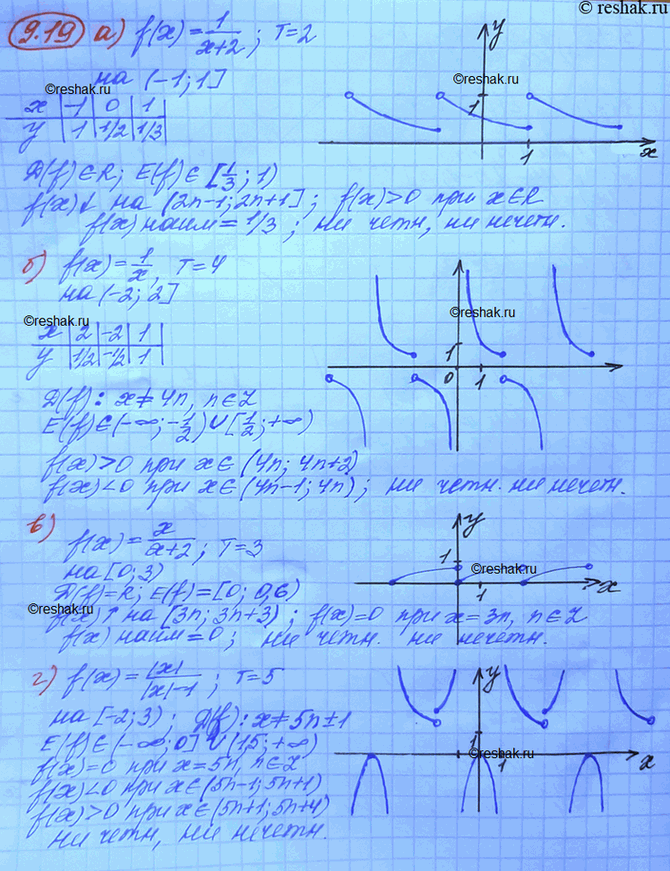 © reshak.ru
9.19 а) f(x) = 1/(x+2); T=2
на (-1; 1]
©reshak.ru
x | -1 | 0 | 1
y | 1 | 1/2 | 1/3
y
1
1
x
Д(f)∈R; E(f)∈[1/3; 1)
f(x)↓ на (2n-1; 2n+1]; f(x)>0 при x∈R
f(x) наим = 1/3; ни четн, ни нечетн.
©reshak.ru
б) f(x) = 1/x, T=4
на (-2; 2]
©reshak.ru
x | 2 | -2 | 1
y | 1/2 | -1/2 | 1
©reshak.ru
1
0 1
Д(f): x≠4n, n∈Z
E(f)∈(-∞; -1/2)∪[1/2; +∞)
f(x)>0 при x∈(4n; 4n+2)
f(x)<0 при x∈(4n-1; 4n); ни четн. ни нечетн.
в) f(x) = x/(x+2); T=3
на [0; 3)
Д(f)=R; E(f)=[0; 0,6)
©reshak.ru
y
1
©reshak.ru
1
x
f(x)↑ на [3n; 3n+3); f(x)=0 при x=3n, n∈Z
f(x) наим=0; ни четн. ни нечетн.
г) f(x) = |x|/(|x|-1); T=5
на [-2; 3); Д(f): x≠5n±1
E(f)∈(-∞; 0]∪(1,5; +∞)
f(x)=0 при x=5n, n∈Z
f(x)<0 при x∈(5n-1; 5n+1)
f(x)>0 при x∈(5n+1; 5n+4)
ни четн, ни нечетн.
y
1
©reshak.ru
1
x